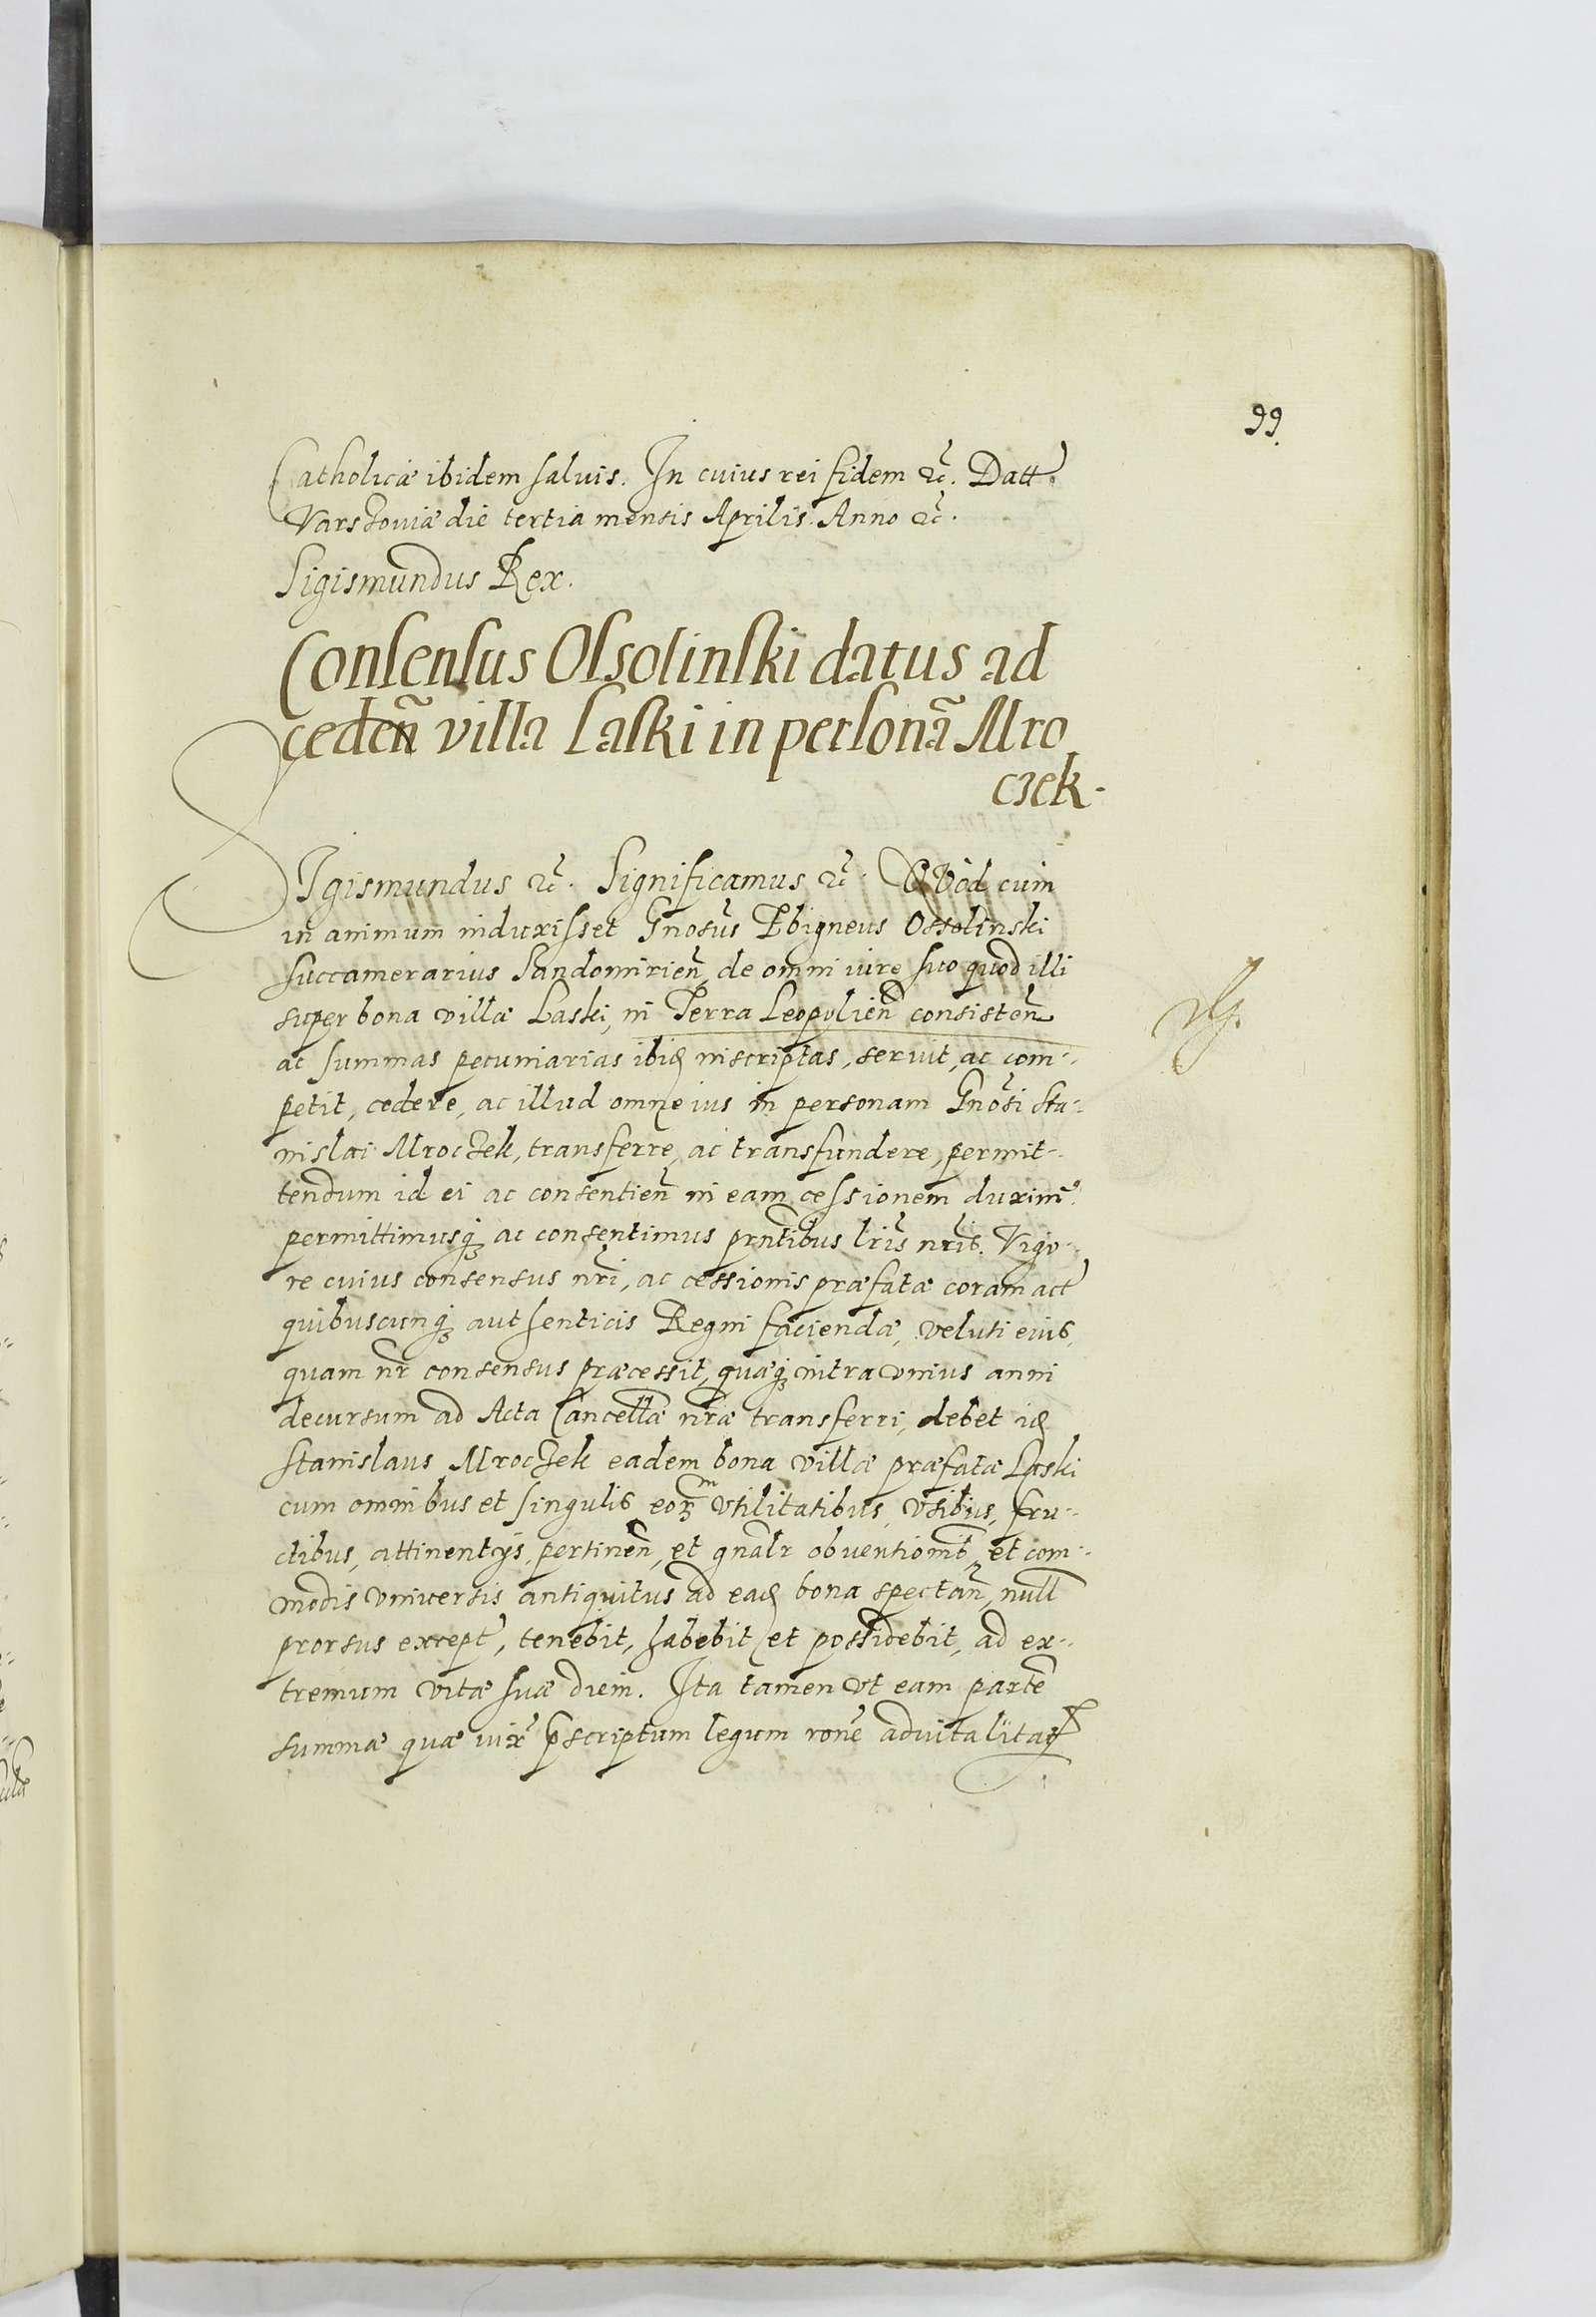 99.
Catholicæ ibidem saluis. In cuius rei fidem etc̃. Datt̃.
Varszouiæ die tertia mensis Aprilis Anno etc̃.
Sigismundus Rex.
Consensus Ossolinski datus ad
cedeñ villa Laski in personã Mro
czek.
SIgismundus etc̃. Significamus etc̃. QVod cum
in animum induxisset Gnosũs Sbigneus Ossolinski
succamerarius Sandomirieñ, de omni iure suo quod illi
super bona villæ Laski, in Terra Leopolieñ consisteñ
ac summas pecuniarias ibiđ inscriptas, seruit, ac com-
petit, cedere, ac illud omne ius in personam Gnosĩ Sta-
nislai Mroczek, transferre, ac transfundere, permit-
tendum id ei ac consentieñ in eam cessionem duxim9.
permittimusq; ac consentimus prñtibus lrĩs nrĩs. Vigo-
re cuius consensus nrĩ, ac cessionis præfatæ coram act̃
quibuscunq; authenticis Regni faciendæ, veluti eius,
quam nr̃ consensus præcessit, quæq; intra vnius anni
decursum ad Acta Cancellæ̃ nræ̃ transferri, debet iđ
Stanislaus Mroczek eadem bona villæ præfatæ Laski
cum omnibus et singulis eorꝝ vtilitatibus, vsibus, fru-
ctibus, attinentijs, pertineñ, et gnãlr obuentionib̃, et com-
modis vniuersis antiquitus ad eađ bona spectañ, null̃
prorsus except̃, tenebit, habebit et possidebit, ad ex-
tremum vitæ suæ diem. Ita tamen vt eam partẽ
summæ quæ iux̃ p̃scriptum legum ronẽ aduitalitat̃